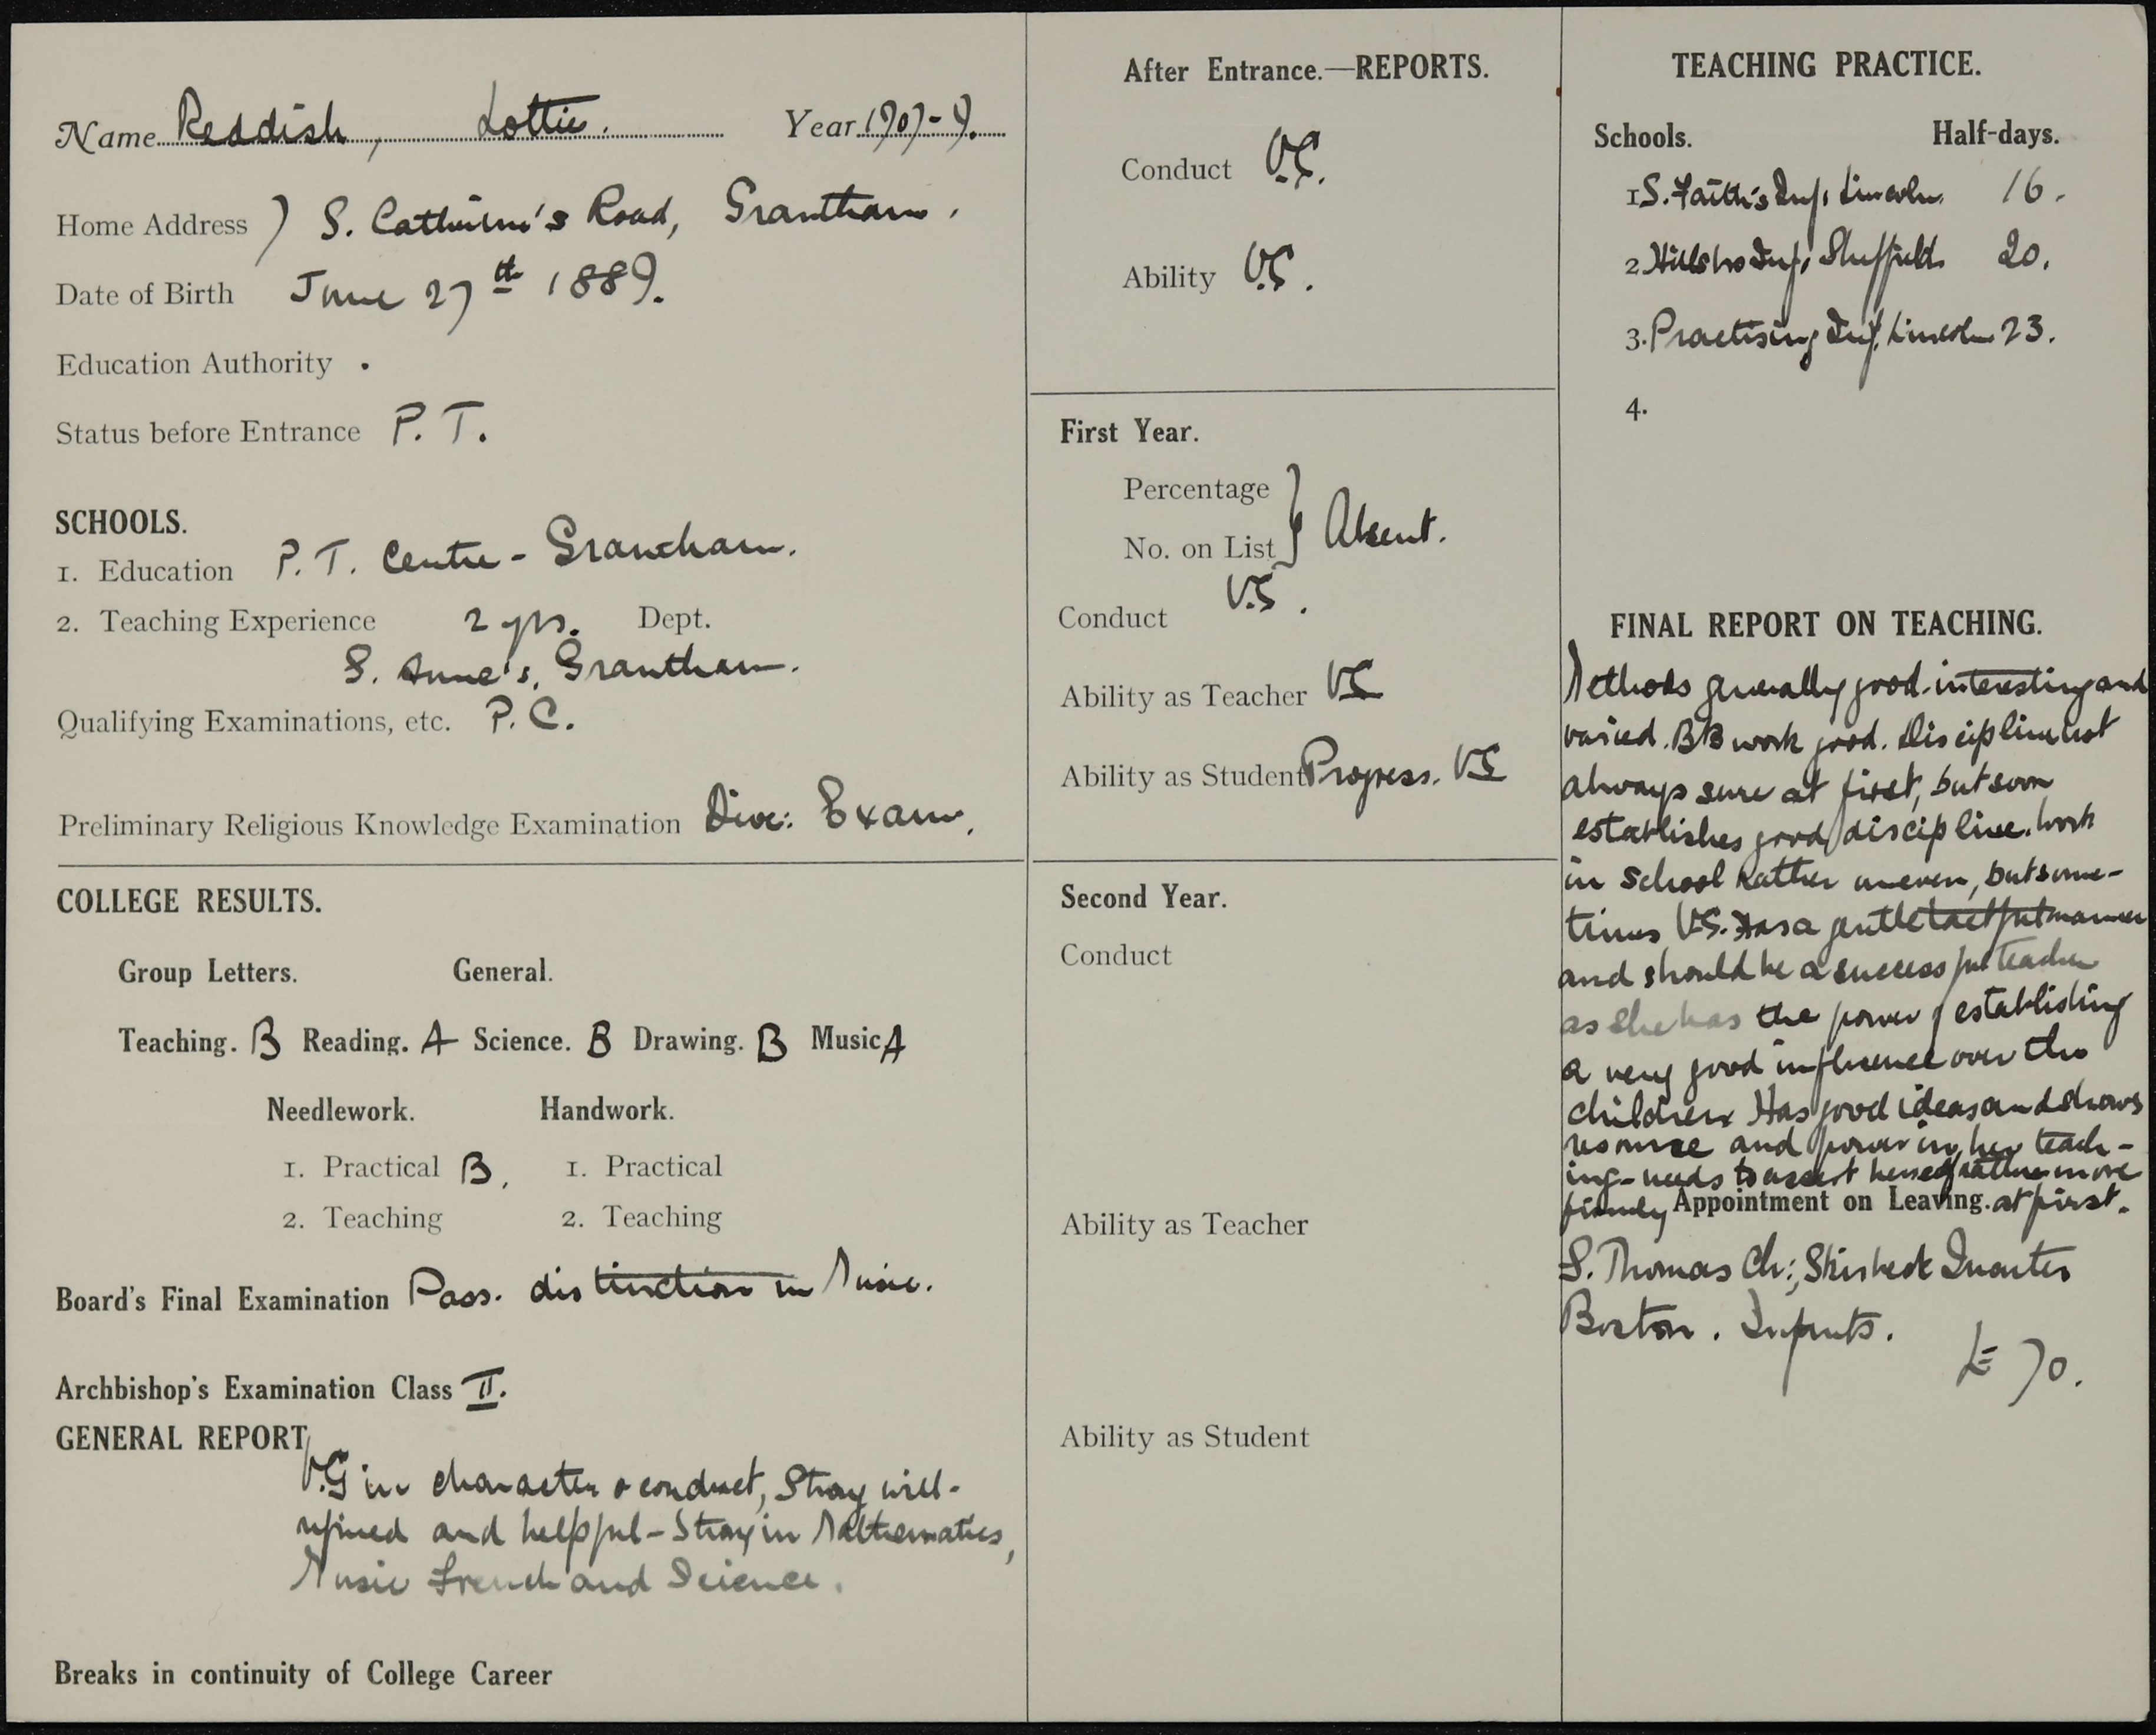 Name Reddish, Lottie. Year 1907-9.
Home Address 7 S. Catherine's Road, Grantham.
Date of Birth June 27th 1889.
Education Authority .
Status before Entrance P. T.
SCHOOLS.
1. Education P. T. Centre - Grantham.
2. Teaching Experience 2 yrs. Dept.
S. Anne's, Grantham.
Qualifying Examinations, etc. P. C.
Preliminary Religious Knowledge Examination Div: Exam.
COLLEGE RESULTS.
Group Letters. General.
Teaching. B Reading. A Science. B Drawing. B Music A
Needlework. Handwork.
1. Practical B, 1. Practical
2. Teaching 2. Teaching
Board's Final Examination Pass. distinction in Music.
Archbishop's Examination Class II.
GENERAL REPORT
V.G in character & conduct, Strong will-
refined and helpful - Strong in Mathematics,
Music French and Science.
Breaks in continuity of College Career
After Entrance.—REPORTS.
Conduct V.G.
Ability V.G.
First Year.
Percentage
No. on List } Absent.
Conduct V.G.
Ability as Teacher VG
Ability as Student Progress. VG
Second Year.
Conduct
Ability as Teacher
Ability as Student
TEACHING PRACTICE.
Schools. Half-days.
1 S. Faith's Inf. Lincoln. 16.
2. Hillsbro Inf. Sheffield. 20.
3. Practising Inf. Lincoln 23.
4.
FINAL REPORT ON TEACHING.
Methods generally good. interesting and
varied. BB work good. Discipline not
always sure at first, but soon
establishes good discipline. Work
in School rather uneven, but some-
times V.G. Has a gentle tactful manner
and should be a successful teacher
as she has the power of establishing
a very good influence over the
children. Has good ideas and shows
resource and power in her teach-
ing - needs to assert herself rather more
firmly at first.
Appointment on Leaving.
S. Thomas Ch:, Skirbeck Quarter
Boston. Infants.
£70.